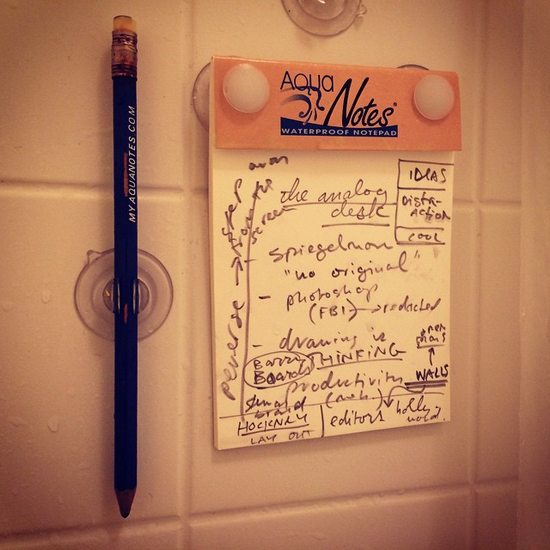 MYAQUANOTES.COM
AQUA
Notes®
WATERPROOF NOTEPAD
away
step
from the
screen
reverse →
the analog
desk
IDEAS
DISTR-
ACTION
COOL
- spiegelman
"no original"
- photoshop
(FBI) → redacted
- drawing is
THINKING
BARRY
BOARDS
open
plans
↑
WALLS
productivity
HOCKNEY
LAY OUT
editors
holly
wood